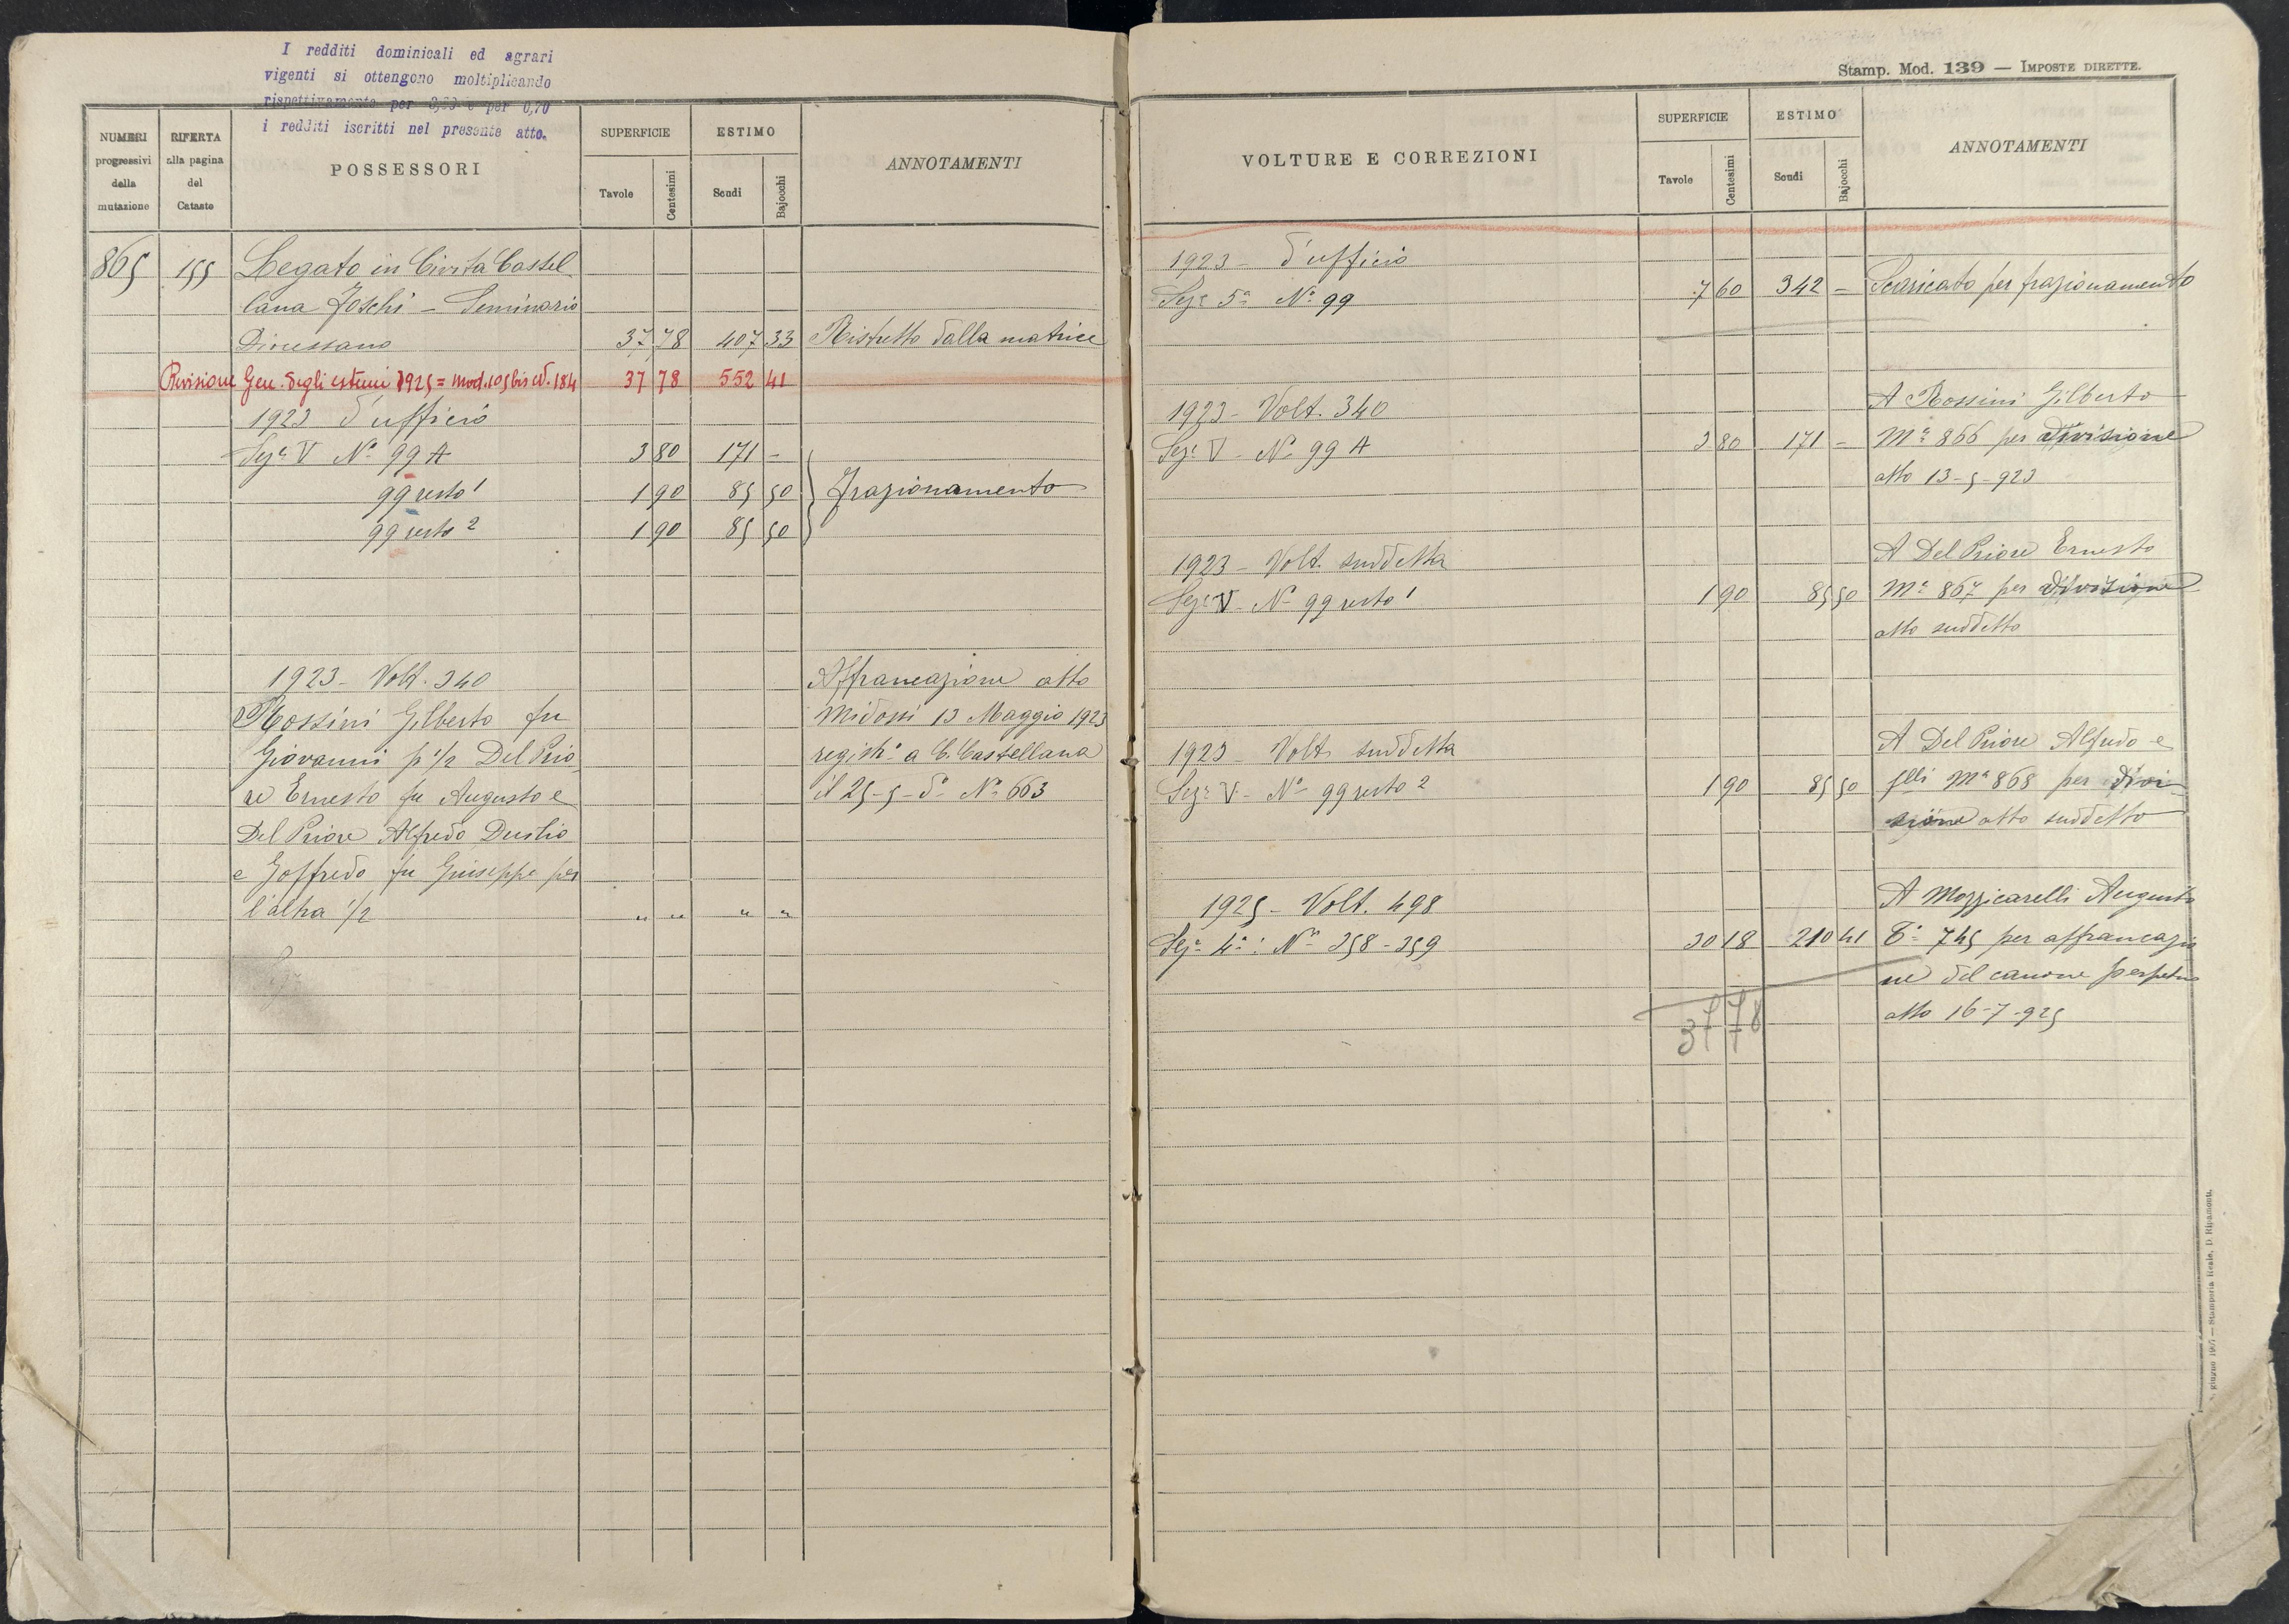 I redditi dominicali ed agrari
vigenti si ottengono moltiplicando
rispettivamente per e per 0,70
i redditi iscritti nel presente atto.
NUMERI progressivi della mutazione
RIFERTA alla pagina del Catasto
POSSESSORI
SUPERFICIE
Tavole Centesimi
ESTIMO
Scudi Bajocchi
ANNOTAMENTI
865 155 Legato in Civita Castel
lana Foschi - Seminario
Diocessano 37 78 407 33 Ristretto dalla matrice
Revisione Gen. degli estimi 1925 = Mod. 105 bis ed. 184 37 78 552 41
1923 d'ufficio
Sez.e V No 99 A 3 80 171 -
99 resto 1 1 90 85 50 Frazionamento
99 resto 2 1 90 85 50
1923 - Volt. 340 Affrancazione atto
Rossini Gilberto fu Midossi 13 Maggio 1923
Giovanni p 1/2 Del Prio registo a C. Castellana
re Ernesto fu Augusto e il 25-5-do No 663
Del Priore Alfredo Duilio
e Goffredo fu Giuseppe per
l'altra 1/2 " " " "
Stamp. Mod. 139 — IMPOSTE DIRETTE.
VOLTURE E CORREZIONI
SUPERFICIE
Tavole Centesimi
ESTIMO
Scudi Bajocchi
ANNOTAMENTI
1923 - d'ufficio
Seze 5a No 99 7 60 342 - Scaricato per frazionamento
1923 - Volt. 340 A Rossini Gilberto
Seze V - No 99 A 3 80 171 - Ma 866 per divisione
atto 13-5-923
1923 - Volt. suddetta A Del Priore Ernesto
Seze V - No 99 resto 1 1 90 85 50 Ma 867 per divisione
atto suddetto
1923 - Volt. suddetta A Del Priore Alfredo e
Seze V - No 99 resto 2 1 90 85 50 flli Ma 868 per divi
sione atto suddetto
1925 - Volt. 498 A Mozzicarelli Augusto
Seze 4a: Ni 358 - 359 30 18 210 41 Ca 745 per affrancazio
ne del canone perpetuo
atto 16-7-925
37 78
giugno — Stamperia Reale, D. Ripamonti.